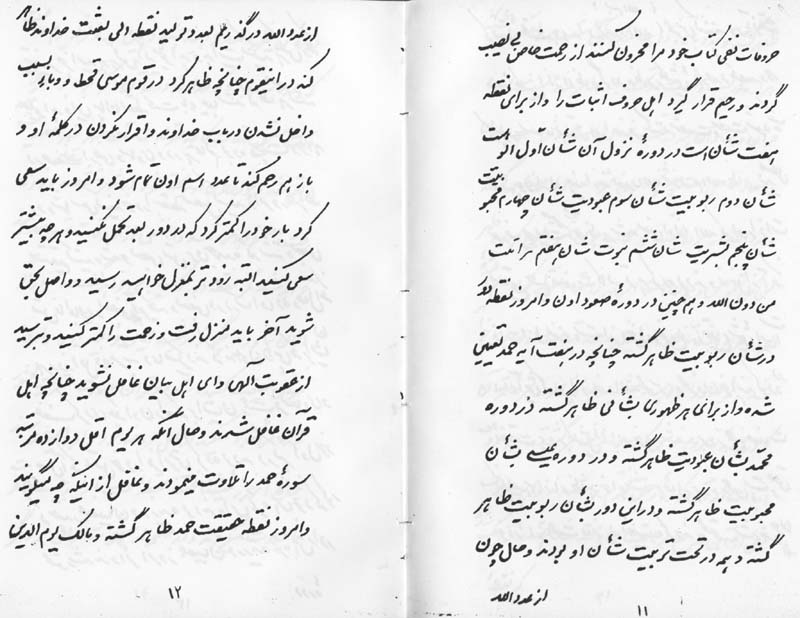 حروفات نفی کتاب خود مرا محزون کنند از رحمت خاص بی نصیب
گردند و رحیم قرار گیرد اهل حروف اثبات را و از برای نقطه
هفت شأن است در دورهٔ نزول آن شأن اوّل الوهیت
شأن دوم ربوبیت شأن سوم عبودیت شأن چهارم محبوبیت
شأن پنجم بشریت شأن ششم نبوت شأن هفتم مراتب
من دون الله و هم چنین در دورهٔ صعود اون و امروز نقطه
در شأن ربوبیت ظاهر گشته چنانچه در هفت آیه حمد تعیین
شده و از برای هر ظهور بشأنی ظاهر گشته در دوره
محمّد بشأن عبودیت ظاهر گشته و در دوره عیسی بشأن
محبوبیت ظاهر گشته و در این دور بشأن ربوبیت ظاهر
گشته و همه در تحت تربیت شأن او بودند و حال چون
از عدد الله
۱۱
از عدد الله درگذریم بعد و ترلید نقطه الی بعثت خداوند ظاهر
کند در این قوم چنانچه ظاهر کرد در قوم موسی قحط و وباء بسبب
داخل نشدن در باب خداوند و اقرار نکردن در کلمهٔ او و
باز هم رحم کند تا عدد اسم اون تمام شود و امروز باید سعی
کرد بار خود را کمتر کرد که در دور بعد تحمل نکنید و هر چه بیشتر
سعی کنید البته زودتر بمنزل خواهید رسید و واصل بحق
شوید آخر باید منزل رفت و زحمت را کمتر کنید و بترسید
از عقوبت الهی و ای اهل بیان غافل نشوید چنانچه اهل
قرآن غافل شدند و حال آنکه هر یوم اقل دوازده مرتبه
سورهٔ حمد را تلاوت مینمودند و غافل از اینکه چه میگویند
و امروز نقطه حقیقت حمد ظاهر گشته و مالک یوم الدین
۱۲